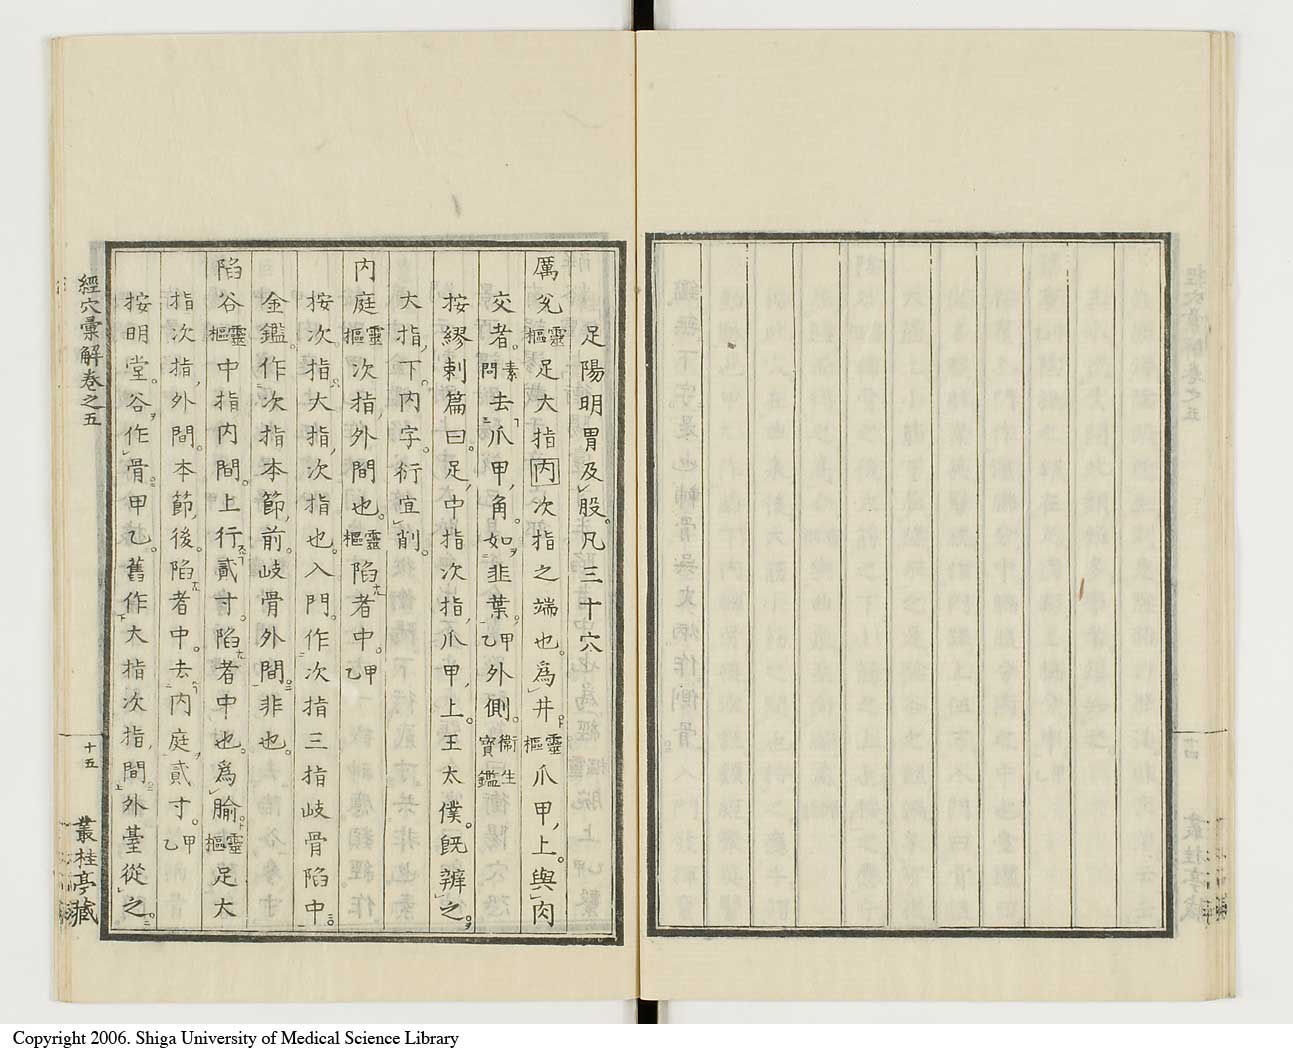 足陽明胃及股。凡三十穴
厲兌靈樞足大指内次指之端也。爲井靈樞爪甲上。與肉
交者。素問去爪甲角。如韭葉。甲乙外側。衞生寶鑑
按繆刺篇曰。足中指次指爪甲上。王太僕。既辨之。
大指下内字。衍宜削。
内庭靈樞次指外間也。靈樞陷者中。甲乙
按次指。大指次指也。入門。作次指三指岐骨陷中。
金鑑。作次指本節前。岐骨外間。非也。
陷谷靈樞中指内間。上行貳寸。陷者中也。爲腧。靈樞足大
指次指外間。本節後。陷者中。去内庭貳寸。甲乙
按明堂。谷作骨。甲乙。舊作大指次指間。外臺從之。
經穴彙解卷之五
十五
叢桂亭藏
Copyright 2006. Shiga University of Medical Science Library